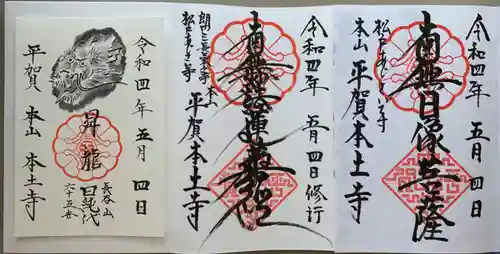 令和四年五月四日
昇龍
長谷山
日純代
六十五世
平賀 本山 本土寺
令和四年五月四日修行
南無妙法蓮華経
朗門三長三本
本山 平賀本土寺
令和四年五月四日
南無日像菩薩
松戸あじさい寺
本山 平賀本土寺